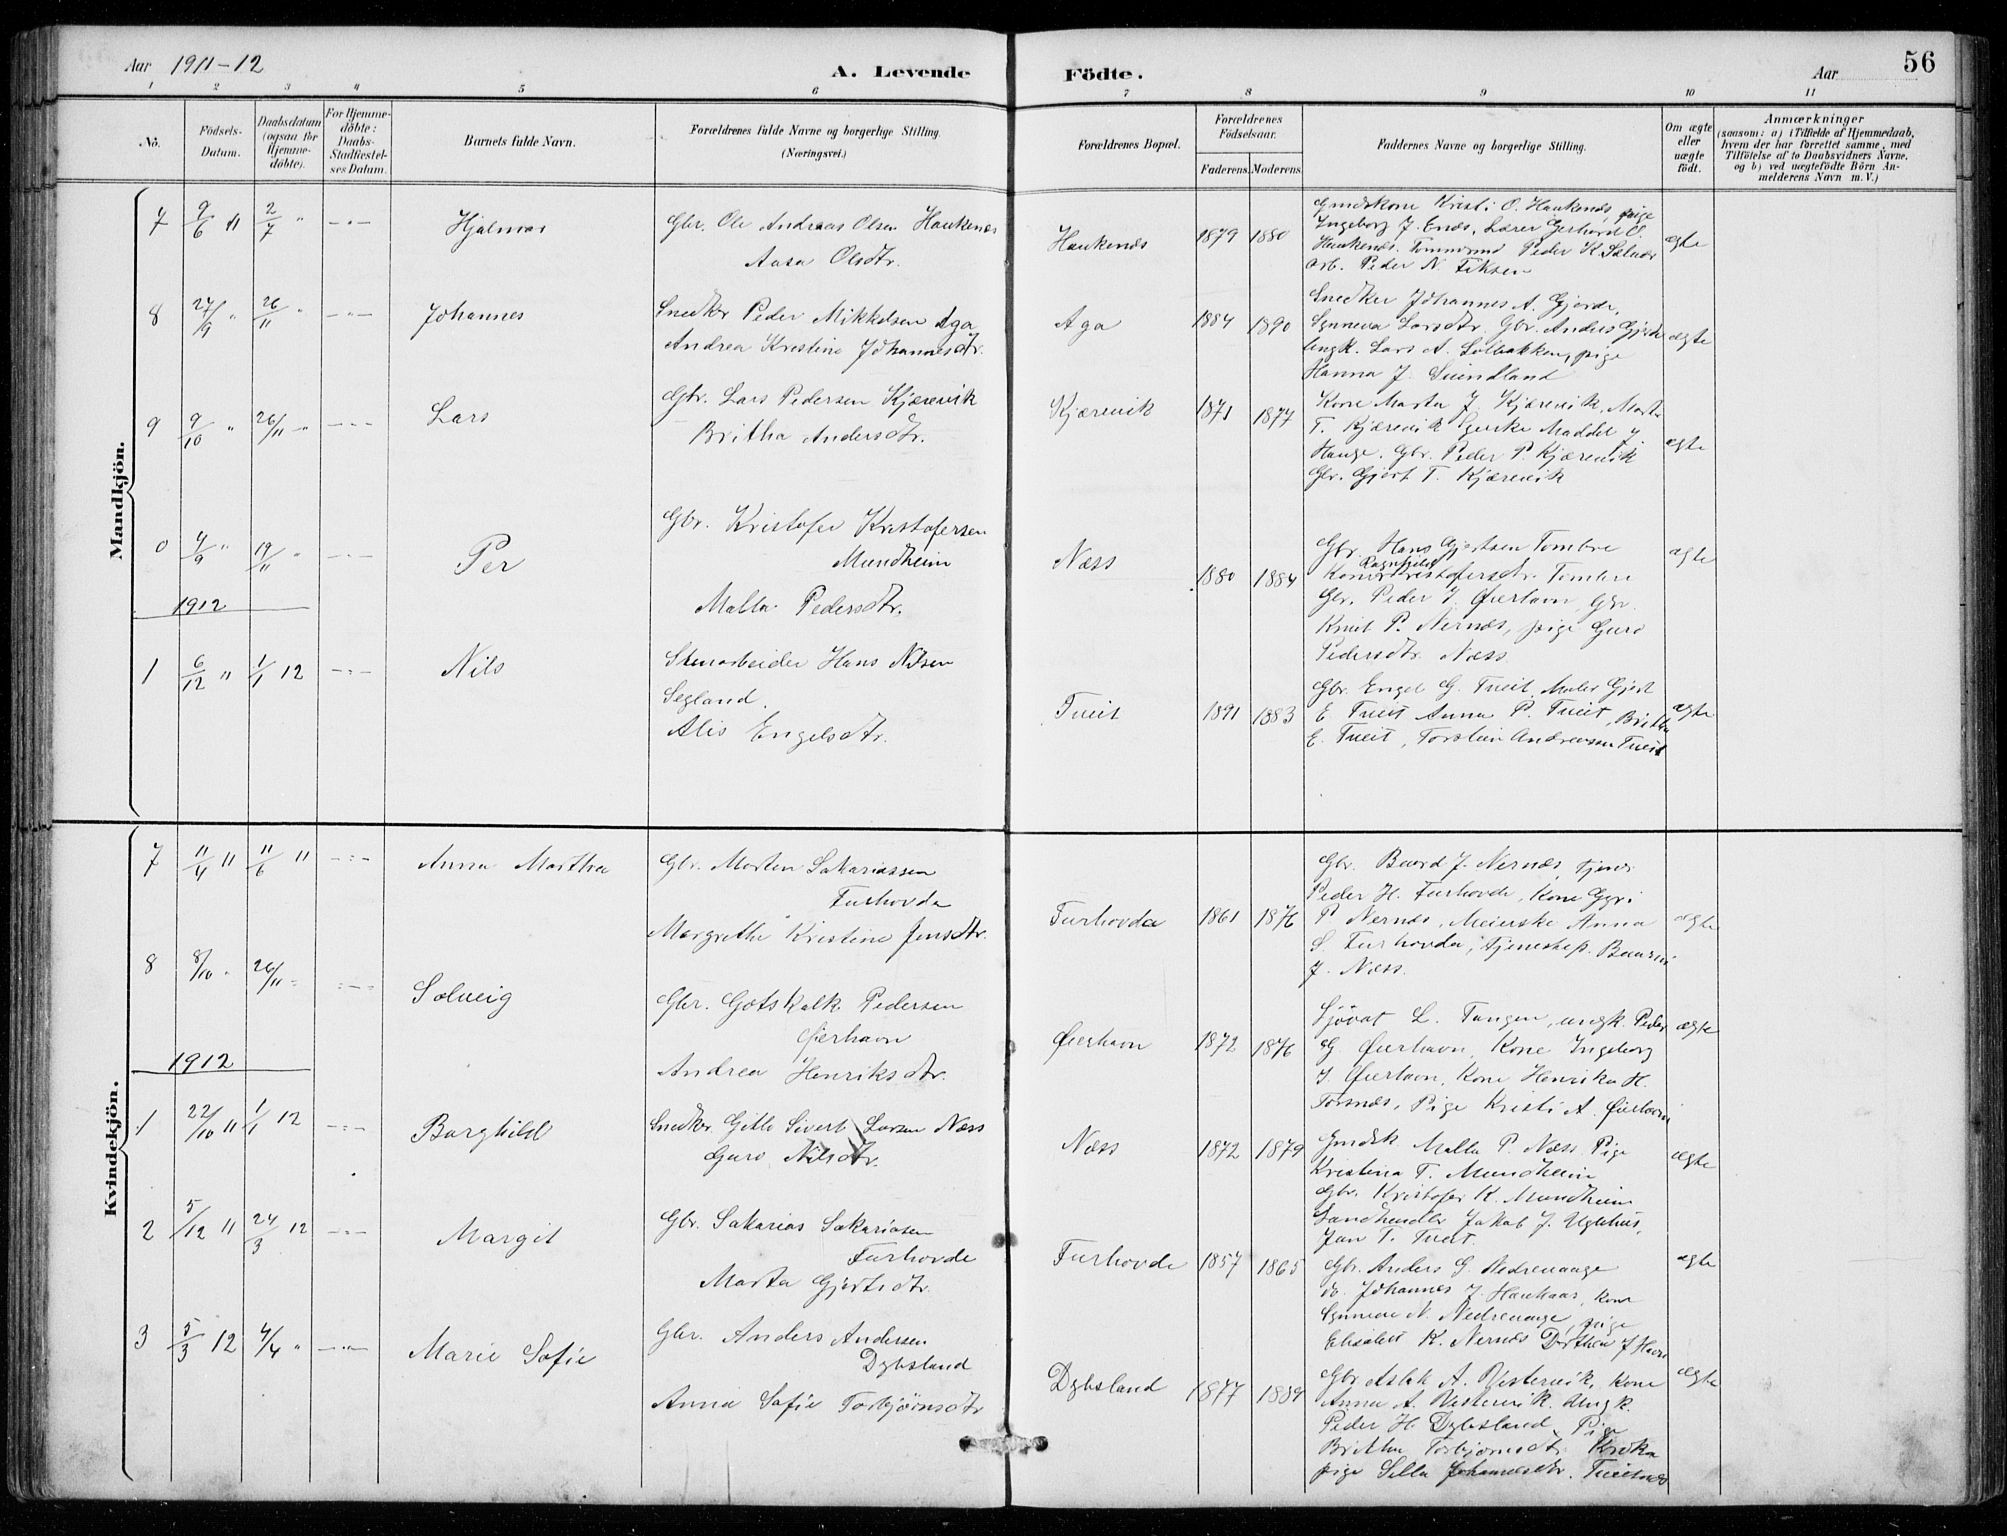 Aar 1911-12
A. Levende
Födte.
Aar
56
1 2 3 4 5 6 7 8 9 10 11
No.
Födsels-Datum.
Daabsdatum (ogsaa for Hjemme-döbte).
For Hjemme-döbte: Daabs-Stadfæstel-ses Datum.
Barnets fulde Navn.
Forældrenes fulde Navne og borgerlige Stilling.
(Næringsvei.)
Forældrenes Bopæl.
Forældrenes Födselsaar.
Faderens.
Moderens.
Faddernes Navne og borgerlige Stilling.
Om ægte eller uægte födt.
Anmærkninger
(saasom: a) i Tilfælde af Hjemmedaab,
hvem der har forrettet samme, med
Tilföielse af to Daabsvidners Navne,
og b) ved uægtefödte Börn An-
melderens Navn m. V.)
Mandkjön.
7 9/6 " 2/7 " -"- Hjalmar
Gbr. Ole Andreas Olsen Haukenæs
Aasa Olsdtr.
Haukenæs 1879 1880
Gmdskone Kristi O. Haukenæs, pige
Ingeborg J. Enæs, Lærer Gerhard O.
Haukenæs. Tømmermd Peder K.
arb. Peder N. Eiksen
ægte
8 27/9 " 26/11 " -"- Johannes
Snedker Peder Mikkelsen Aga
Andrea Kristine Johannesdtr.
Aga 1884 1890
Snedker Johannes A. Gjerde,
Synneva Larsdtr. Gbr. Anders Gjerde
ungk. Lars A. Solbakken, pige
Hanna J. Svindland
ægte
9 9/10 " 26/11 " -"- Lars
Gbr. Lars Pedersen Kjærevik
Britha Andersdtr.
Kjærevik 1871 1877
Kone Marta J. Kjærevik, Marta
T. Kjærevik Maddel J
Hauge. Gbr. Peder P Kjærevik
Gbr. Gjert T. Kjærevik
ægte
0 4/9 " 19/11 " -"- Per
Gbr. Kristofer Kristofersen
Mundheim
Malla Pedersdtr.
Næss 1880 1884
Gbr. Hans Gjertsen Tombre
Ragnhild
Kone Kristofersdtr. Tombre
Gbr. Peder J. Øierhavn, Gbr.
Knut P. Nernæs, pige Guro
Pedersdtr. Næss
ægte
1912
1 6/12 " 1/1 12 -"- Nils
Stenarbeider Hans Nilsen
Segland.
Alis Engelsdtr.
Tveit 1891 1883
Gbr. Engel G. Tveit, Maler Gjert
E Tveit Anna P. Tveit, Britha
E. Tveit, Torstein Andreassen Tveit
ægte
Kvindekjön.
7 11/4 " 11/6 " -"- Anna Martha
Gbr. Morten Sakariassen
Furhovda
Margrethe Kristine Jensdtr.
Furhovda 1861 1876
Gbr. Baard J. Nernæs, tjener
Peder H. Furhovde, Kone Gyri
P Nernæs, Meierske Anna
S. Furhovda, tjenestep.
J. Næss.
ægte
8 8/10 " 26/11 " -"- Solveig
Gbr. Gotskalk Pedersen
Øierhavn
Andrea Henriksdtr.
Øierhavn 1872 1876
Sjøvat L. Tangen, ungk. Peder
G. Øierhavn, Kone Ingeborg
J. Øierhavn, Kone Henrika H.
Torsnæs, Pige Kristi A. Øierhavn
ægte
1912
1 22/10 " 1/1 12 -"- Borghild
Snedker Gitle Sivert Larsen Næss
Guro Nilsdtr.
Næss 1872 1879
Gmdsk. Malla P. Næss Pige
Kristina T. Mundheim
Gbr. Kristofer K. Mundheim
Landhandler Jakob J. Uglehus,
Jan T. Tveit.
ægte
2 5/12 " 24/3 12 -"- Margit
Gbr. Sakarias Sakariasen
Furhovde
Marta Gjertsdtr.
Furhovde 1857 1865
Gbr. Anders G. Nedrevaage
do. Johannes J. Haukaas, kone
Synneve N. Nedrevaage, pige
Elisabet K. Nernæs Dorthea J
ægte
3 5/3 12 4/4 " -"- Marie Sofie
Gbr. Anders Andersen
Dybsland
Anna Sofie Torbjørnsdtr
Dybsland 1877 1889
Gbr Aslak A. Vestervik, kone
Anna A. Vestervik. Ungk.
Peder H. Dybsland Pige
Britha Torbjørnsdtr.
pige Sella Johannesdtr. Tveitnes
ægte